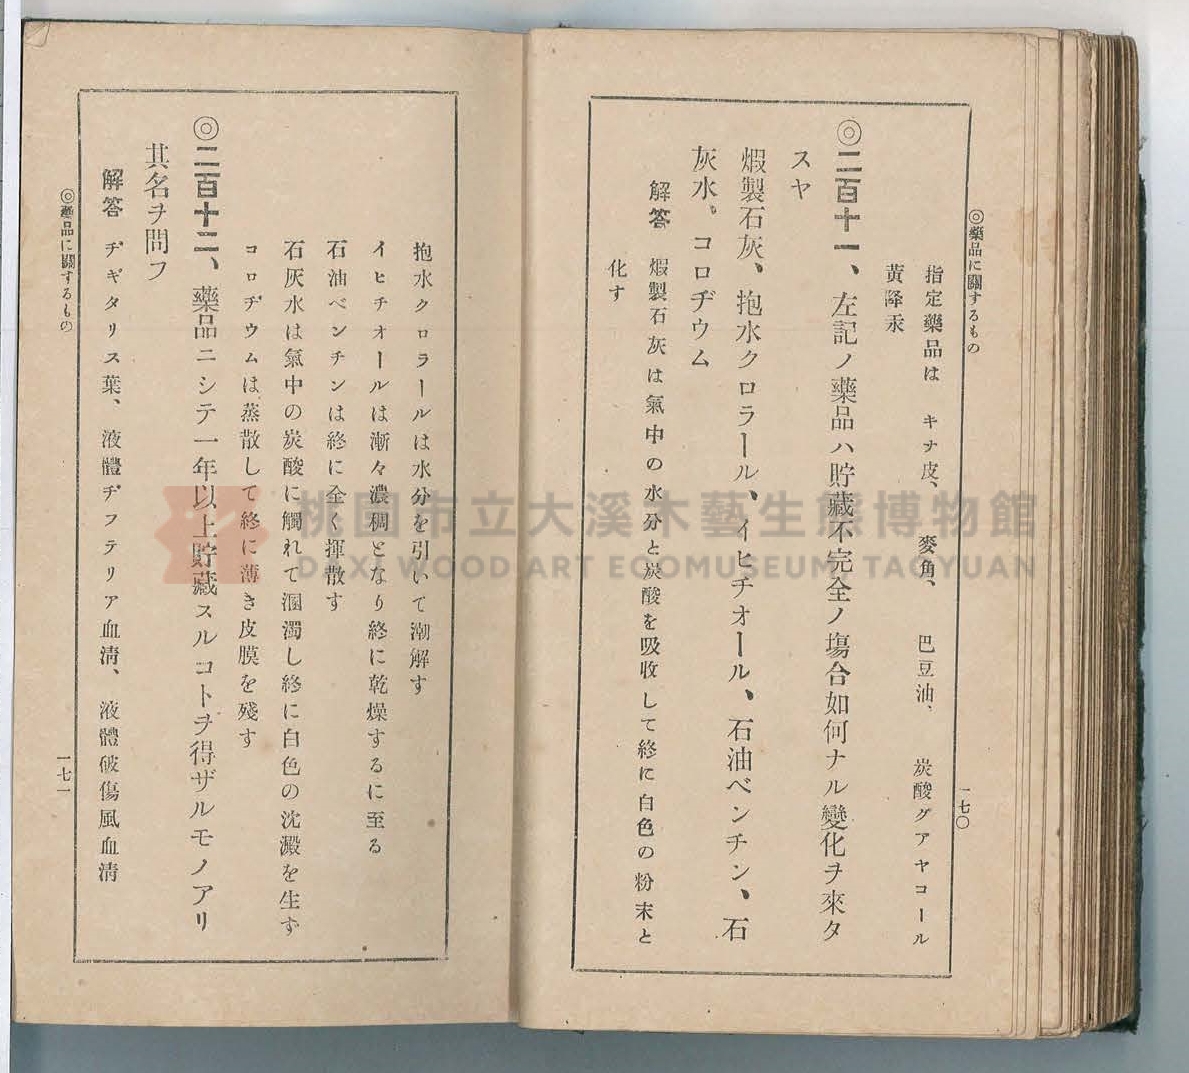 ◎藥品に關するもの
一七〇
指定藥品は　キナ皮、麥角、巴豆油、炭酸グアヤコール
黄降汞
◎二百十一、左記ノ藥品ハ貯藏不完全ノ塲合如何ナル變化ヲ來タ
スヤ
煆製石灰、抱水クロラール、イヒチオール、石油ベンチン、石
灰水、コロヂウム
解答　煆製石灰は氣中の水分と炭酸を吸收して終に白色の粉末と
化す
抱水クロラールは水分を引いて潮解す
イヒチオールは漸々濃稠となり終に乾燥するに至る
石油ベンチンは終に全く揮散す
石灰水は氣中の炭酸に觸れて溷濁し終に白色の沈澱を生ず
コロヂウムは蒸散して終に薄き皮膜を殘す
◎二百十二、藥品ニシテ一年以上貯藏スルコトヲ得ザルモノアリ
其名ヲ問フ
解答　ヂギタリス葉、液體ヂフテリア血淸、液體破傷風血淸
◎藥品に關するもの
一七一
桃園市立大溪木藝生態博物館
DAXI WOOD ART ECOMUSEUM, TAOYUAN